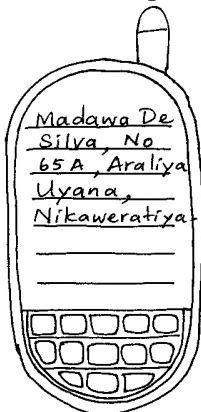 Madawa De
Silva, No
65A, Araliya
Uyana,
Nikaweratiya.